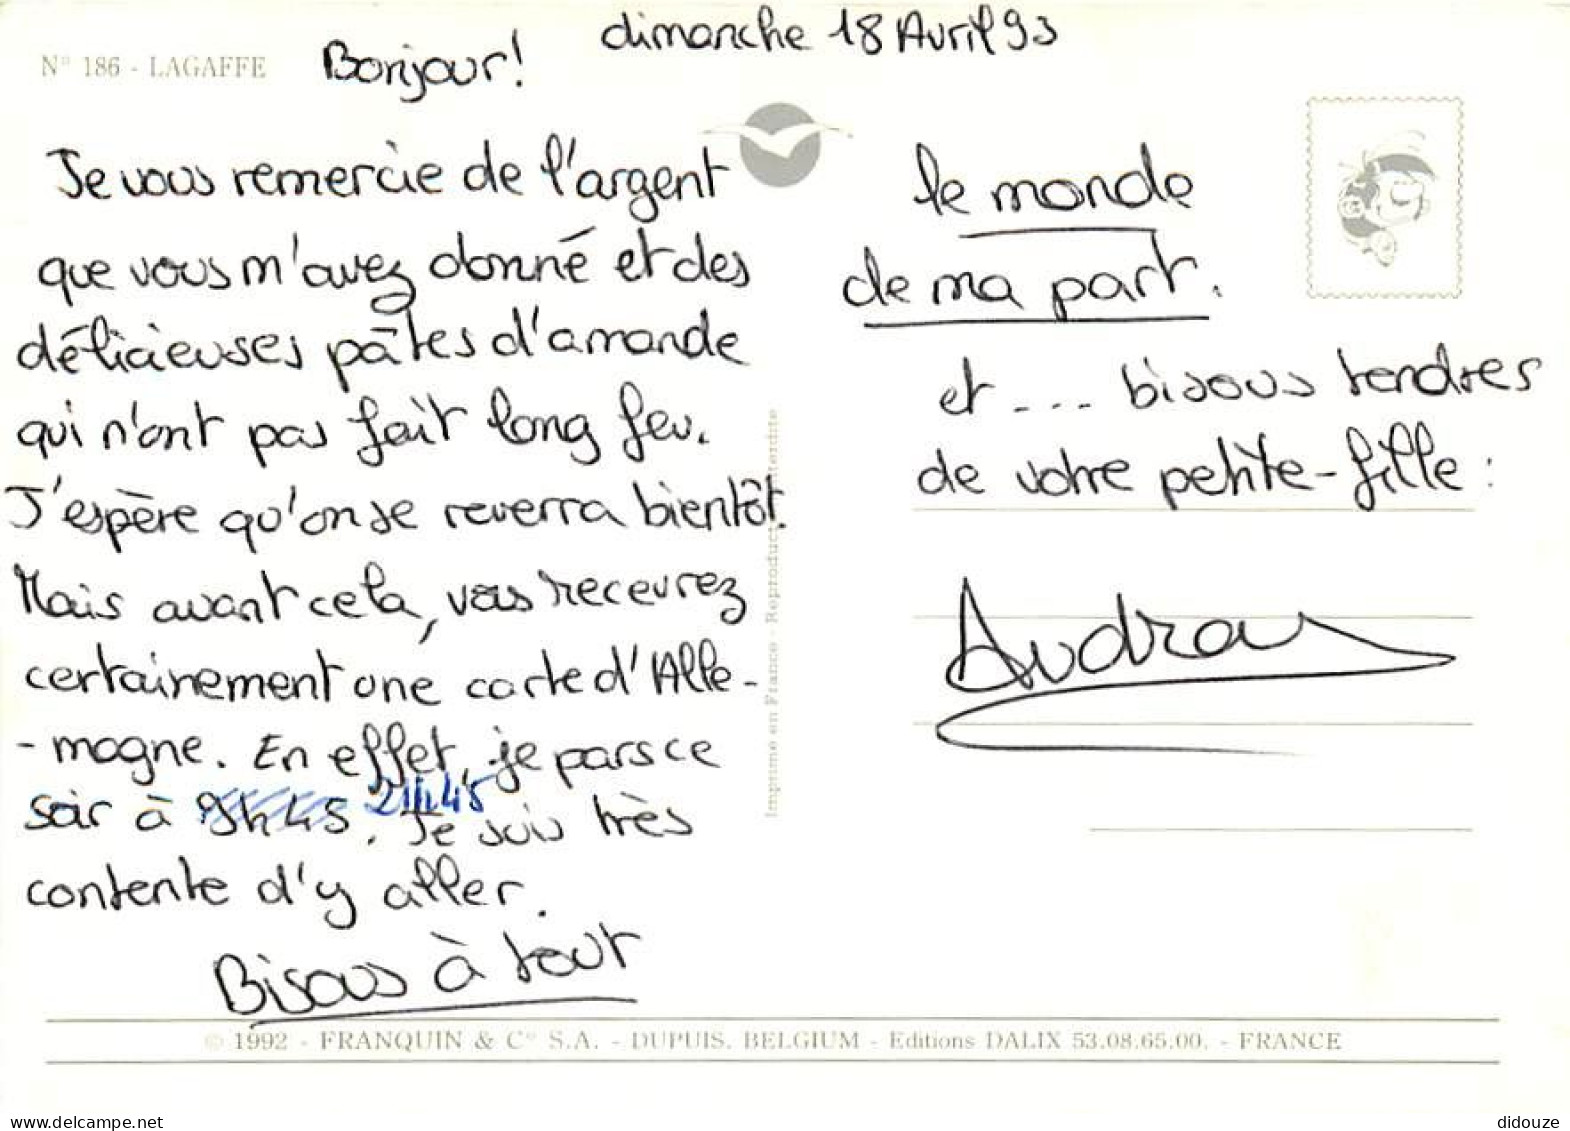 dimanche 18 Avril 93
N° 186 - LAGAFFE
Bonjour!
Je vous remercie de l'argent
que vous m'avez donné et des
délicieuses pâtes d'amande
qui n'ont pas fait long feu.
J'espère qu'on se reverra bientôt.
Mais avant cela, vous recevrez
certainement une carte d'Alle-
-magne. En effet, je pars ce
soir à 9h45. 21h45 Je suis très
contente d'y aller.
Bisous à tout
le monde
de ma part.
et ... bisous tendres
de votre petite-fille :
Audray
Imprimé en France - Reproduction interdite
© 1992 - FRANQUIN & C° S.A. - DUPUIS. BELGIUM - Editions DALIX 53.08.65.00. - FRANCE
didouze